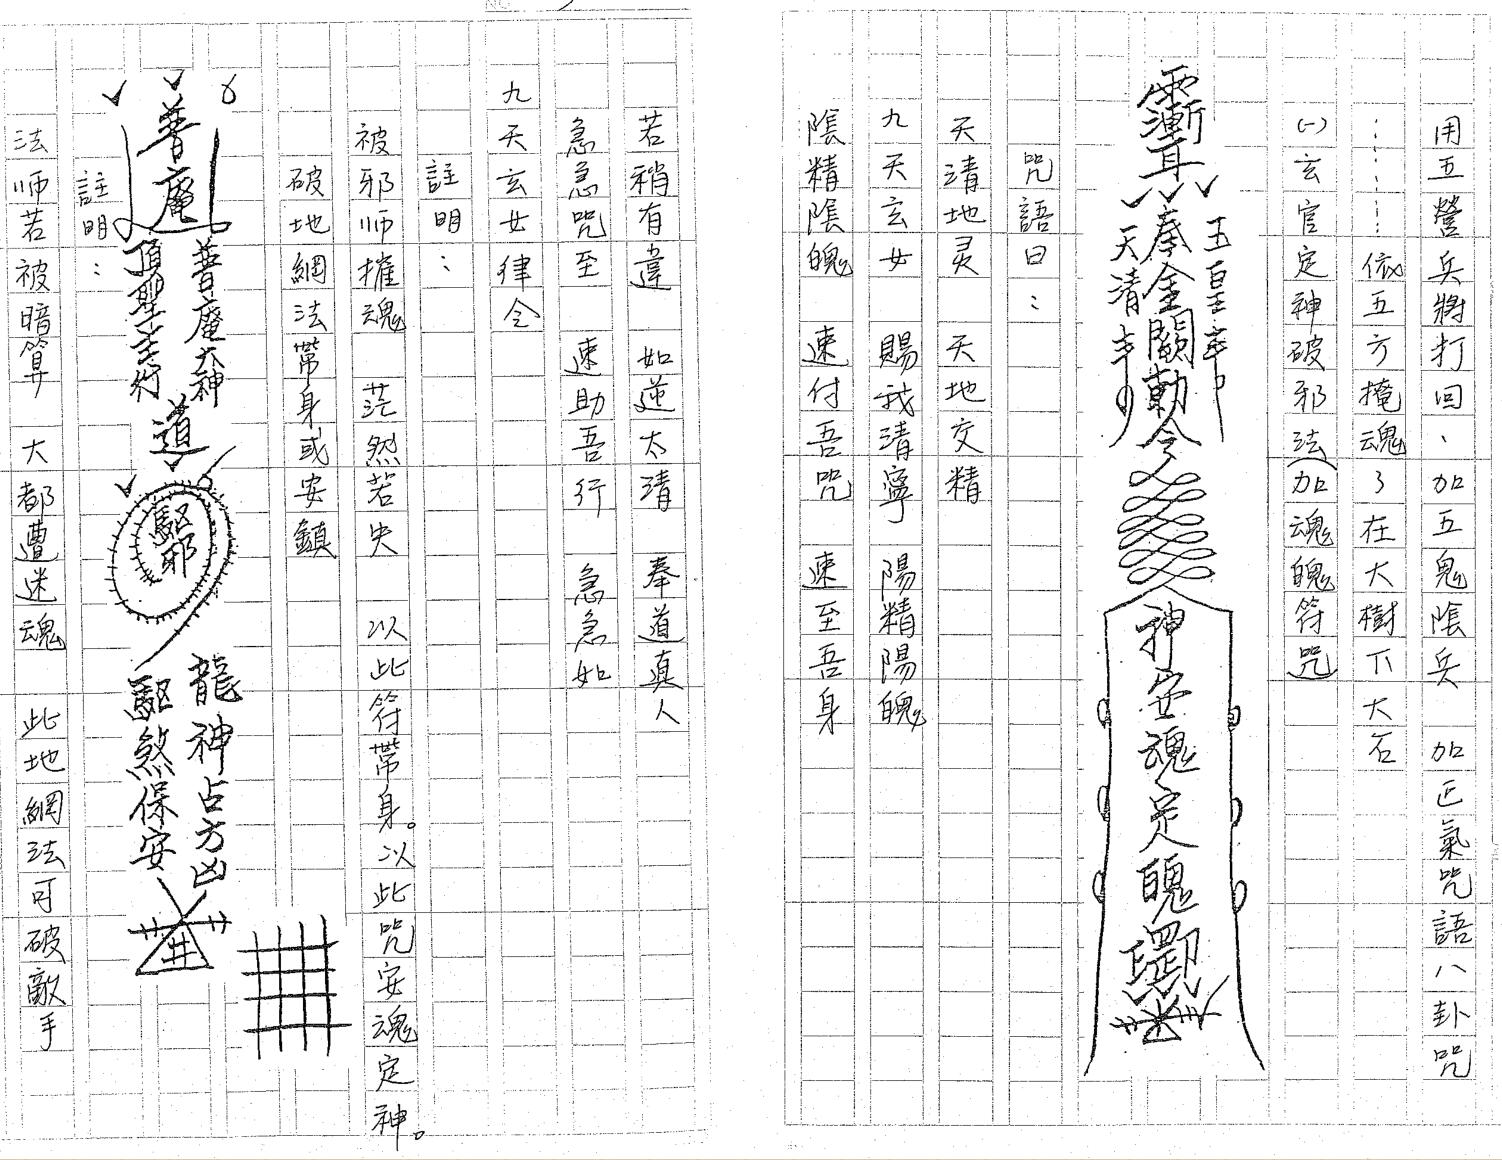 用五營兵將打回、加五鬼陰兵 加正氣咒語八卦咒
……依五方掩魂了在大樹下 大石
(一)玄官定神破邪法(加魂魄符咒)
玉皇
奉金闕勅令
天清
神安魂定人魄
咒語曰：
天清地灵 天地交精
九天玄女 賜我清寧 陽精陽魄
陰精陰魄 速付吾咒 速至吾身
若稍有違 如逆太清 奉道真人
急急咒至 速助吾行 急急如
九天玄女律令
註明：
被邪师摧魂 茫然若失 以此符帶身。以此咒安魂定神。
破地網法帶身或安鎮
普庵
普庵大神
頂聖
行
道
驅邪
龍神占方凶
驅煞保安
井
註明：
法师若被暗算 大都遭迷魂 此地網法可破敵手